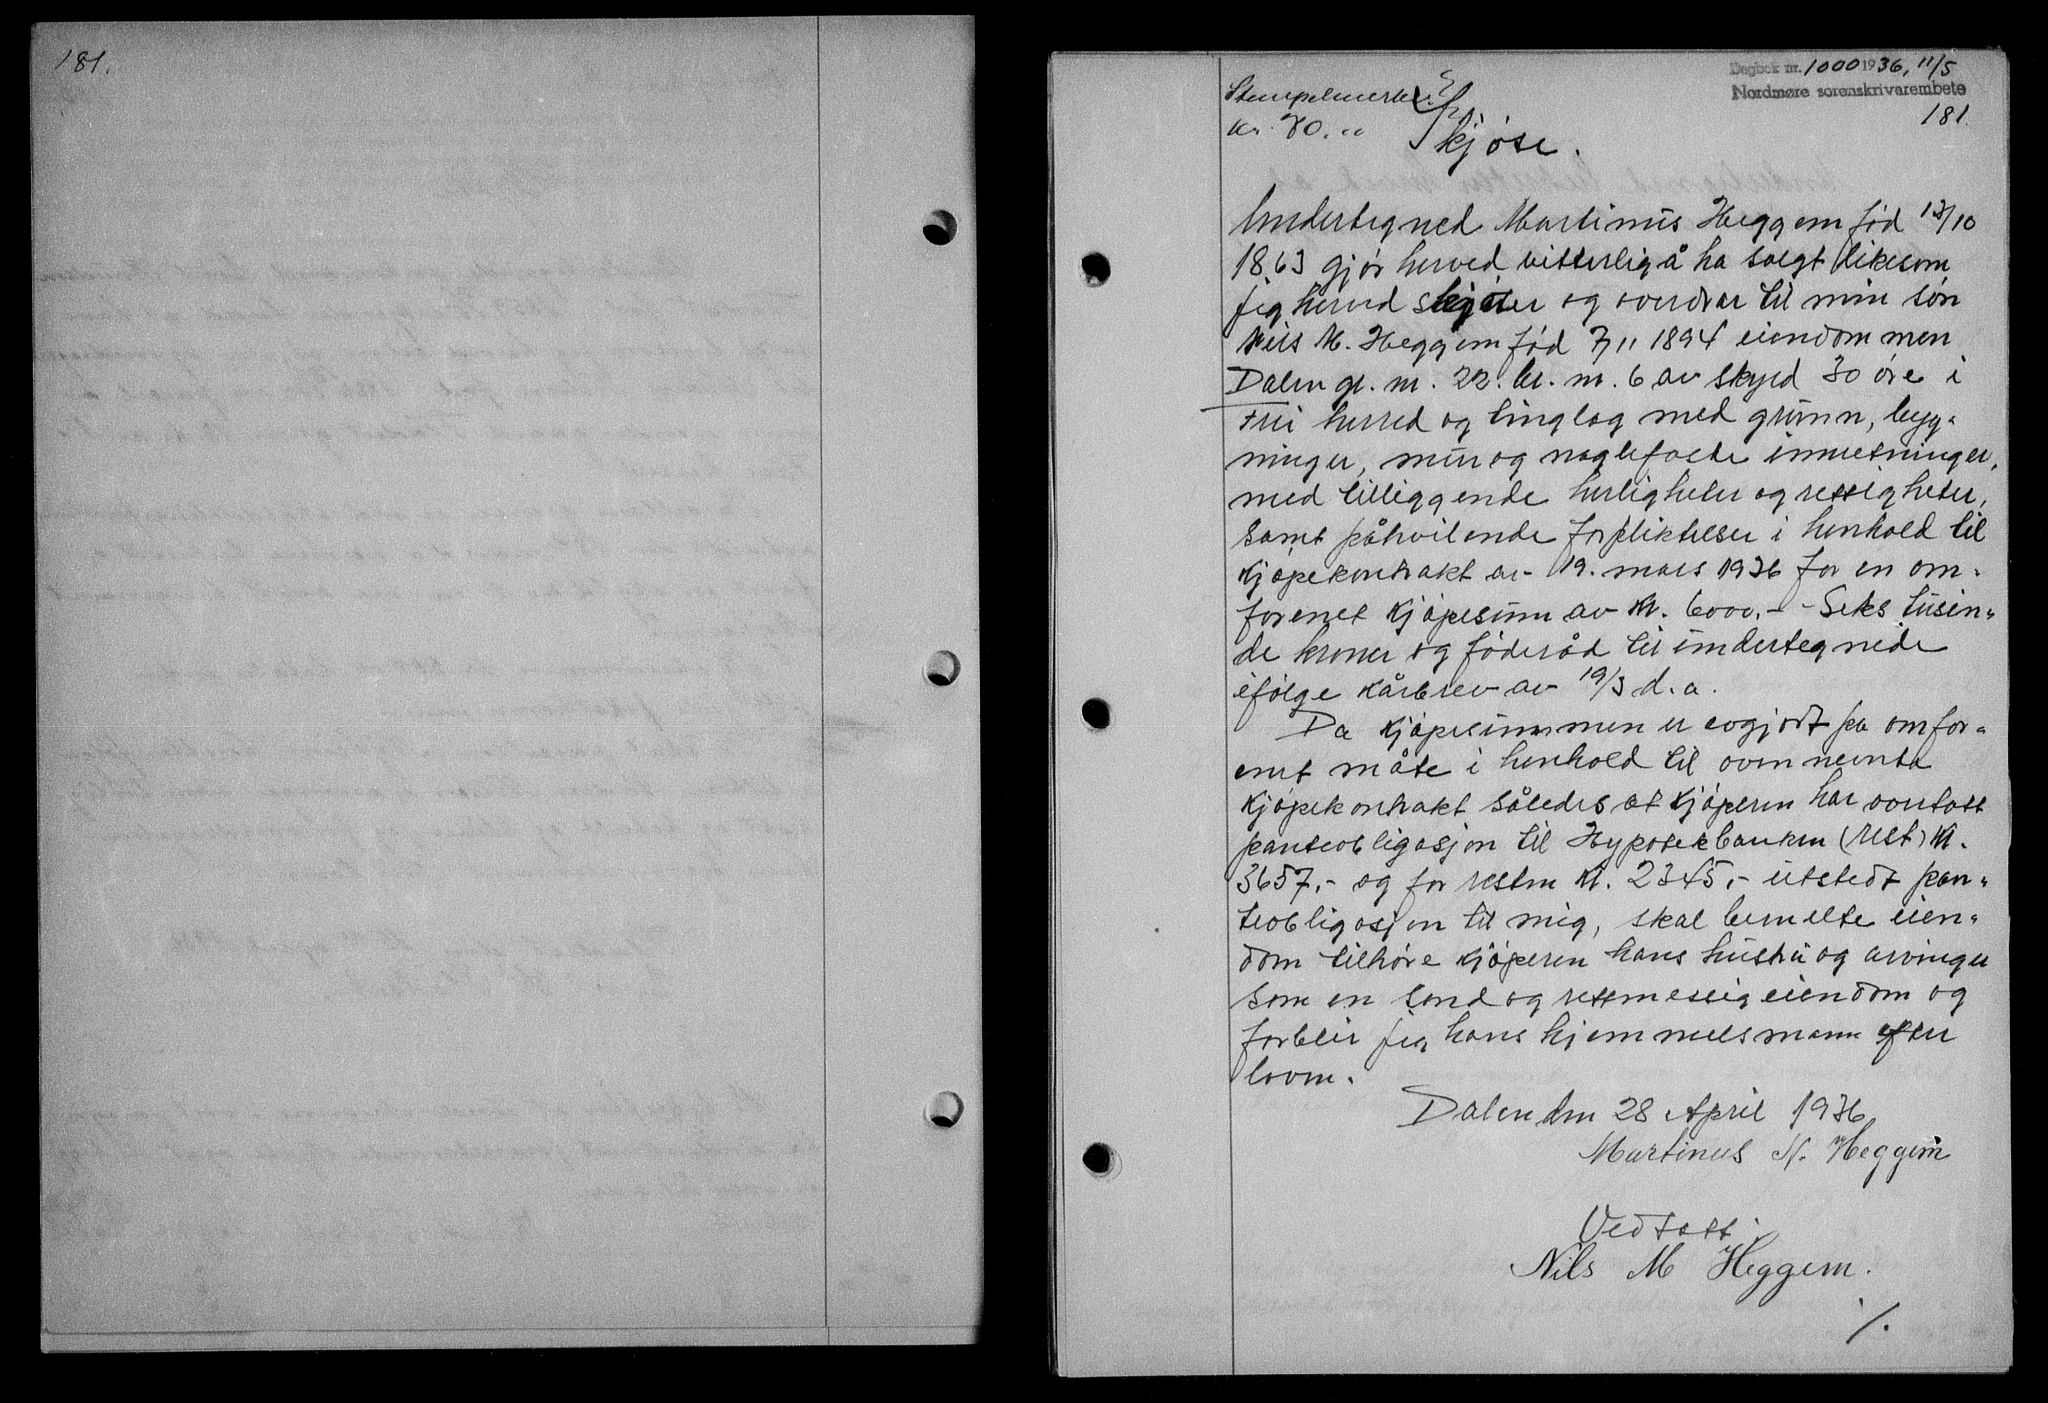 181.
Dagbok nr. 1000 1936, 11/5
Nordmøre sorenskrivarembete
181
Stempelmerke
kr. 70. "
Skjøte.
Undertegned Martinus Heggem fød 13/10
1863 gjør herved vitterlig å ha solgt likesom
jeg herved skjøter og overdrar til min søn
Nils M. Heggem fød 7/11 1894 eiendommen
Dalen gr. nr. 22. br. nr. 6 av skyld 30 øre i
Frei herred og tinglag med grunn, byg-
ninger, mur og naglefaste innretninger,
med tilliggende herligheter og rettigheter,
samt påhvilende forpliktelser i henhold til
kjøpekontrakt av 19. mars 1936 for en om-
forenet kjøpesum av kr. 6000,- - Seks tusin-
de kroner og føderåd til undertegnede
ifølge kårbrev av 19/3 d.a.
Da kjøpesummen er avgjort på omfor-
ent måte i henhold til ovennevnte
kjøpekontrakt således at kjøperen har overtatt
panteobligasjon til Hypotekbanken (rest) kr.
3657,- og for resten kr. 2345,- utstedt pan-
teobligasjon til mig, skal bemelte eien-
dom tilhøre kjøperen hans hustru og arvinger
som en lovlig og rettmessig eiendom og
forblir jeg hans hjemmelsmann efter
loven.
Dalen den 28 April 1936
Martinus N. Heggem
Vedtatt:
Nils M Heggem.
./.